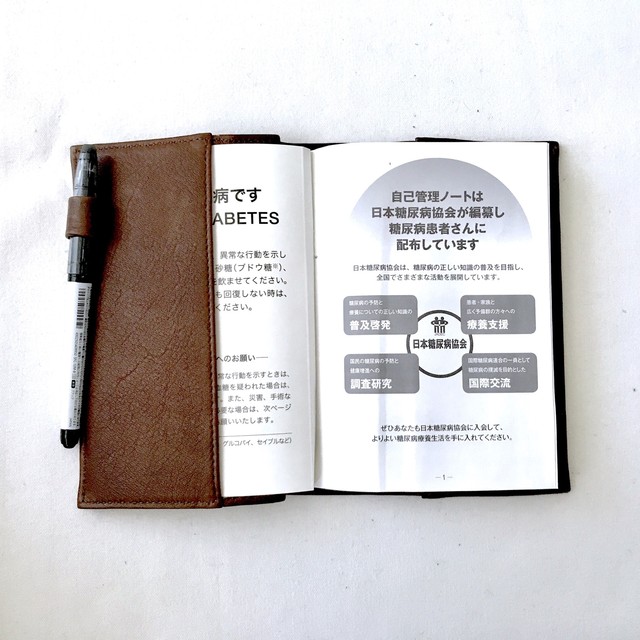 病です
ABETES
異常な行動を示し
砂糖(ブドウ糖※)、
飲ませてください。
も回復しない時は、
ください。
へのお願い
常な行動を示すときは、
血糖を疑われた場合は、
。また、災害、手術な
要な場合は、次ページ
願いいたします。
グルコバイ、セイブルなど)
自己管理ノートは
日本糖尿病協会が編纂し
糖尿病患者さんに
配布しています
日本糖尿病協会は、糖尿病の正しい知識の普及を目指し、
全国でさまざまな活動を展開しています。
糖尿病の予防と
療養についての正しい知識の
普及啓発
患者・家族と
広く予備群の方々への
療養支援
日本糖尿病協会
国民の糖尿病の予防と
健康増進への
調査研究
国際糖尿病連合の一員として
糖尿病の撲滅を目的とした
国際交流
ぜひあなたも日本糖尿病協会に入会して、
よりよい糖尿病療養生活を手に入れてください。
—1—